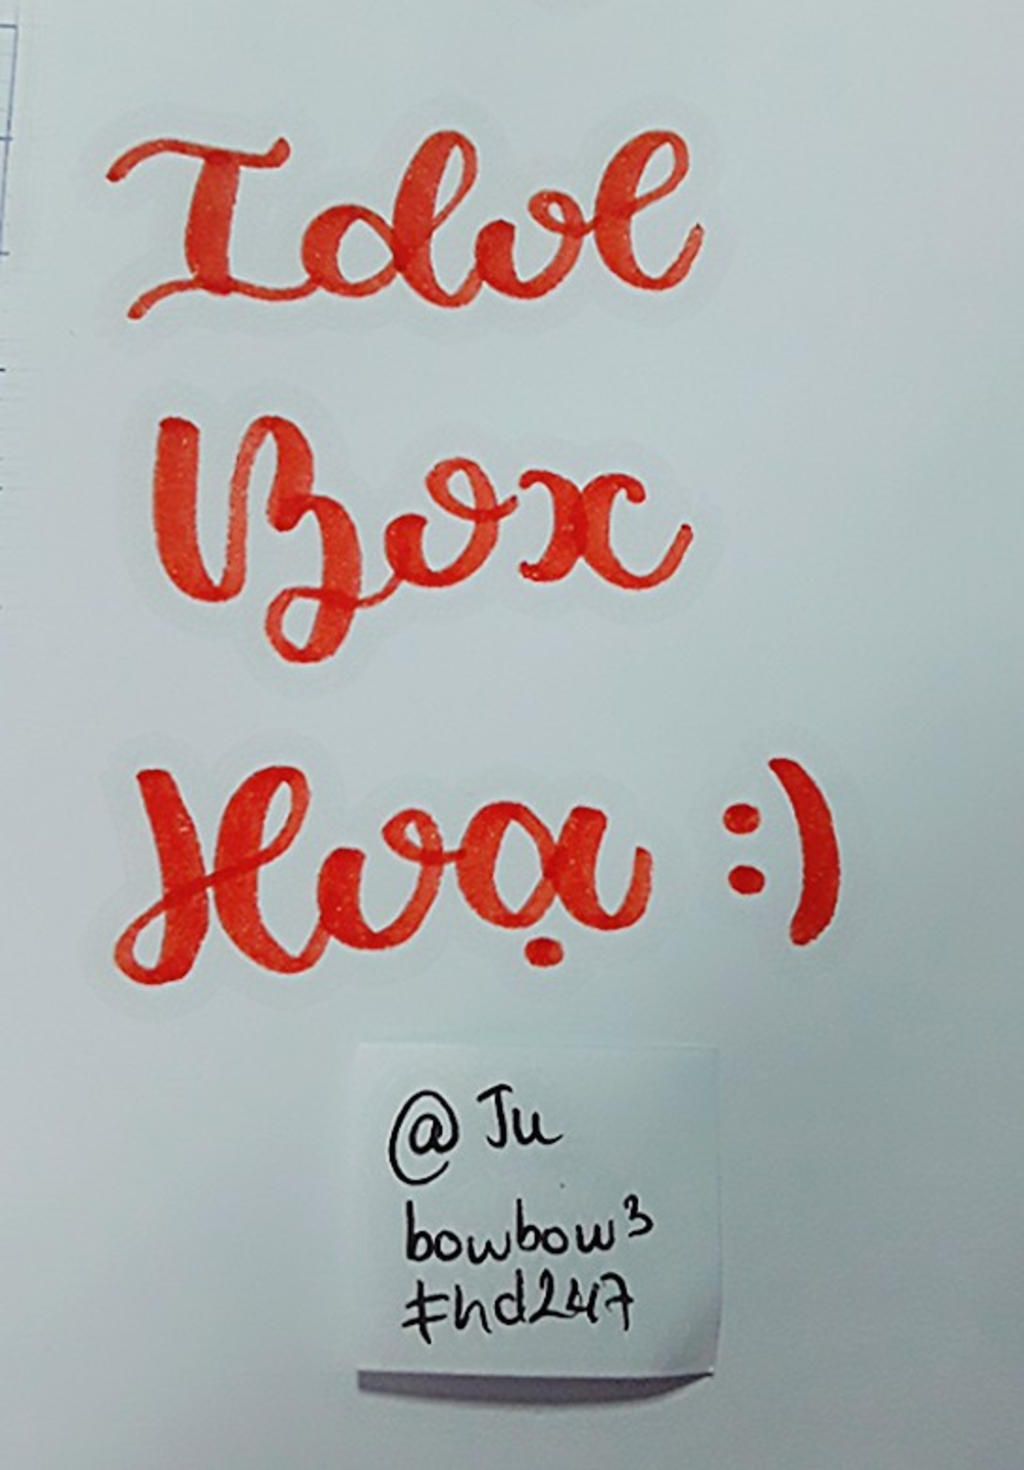 Idol
Box
Hoạ :)
@Ju
bowbow3
#hd247